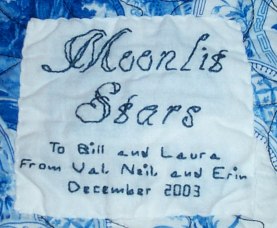 Moonlit
Stars
To Bill and Laura
From Val, Neil and Erin
December 2003